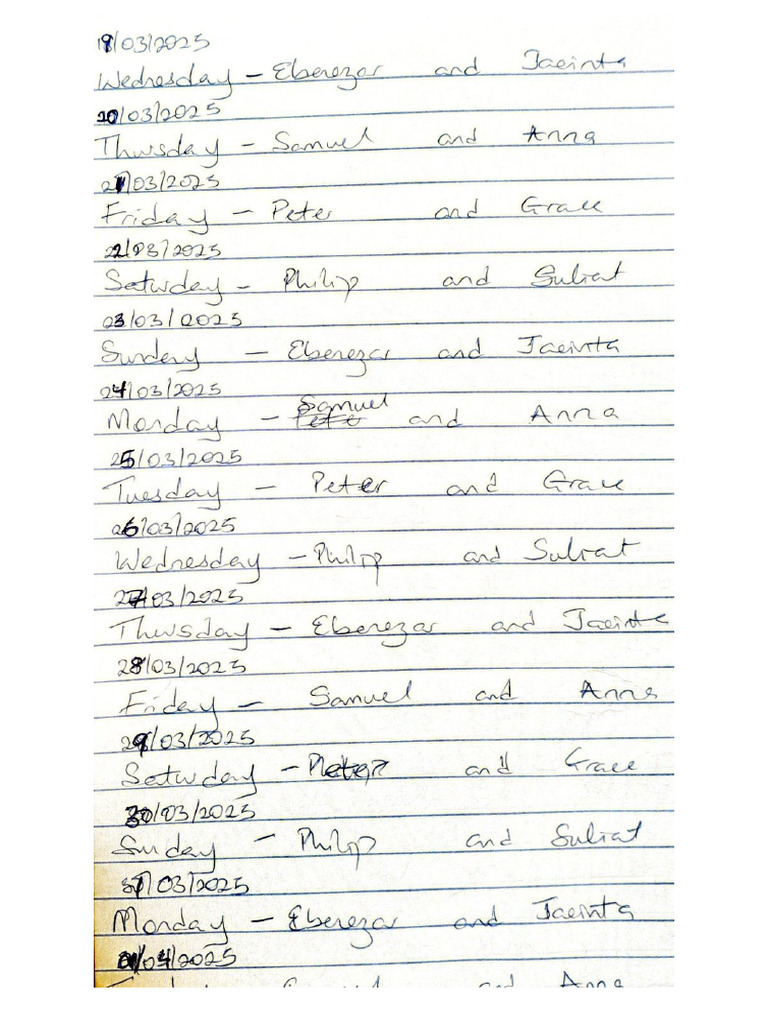 19/03/2025
Wednesday - Ebenezar and Jacinta
20/03/2025
Thursday - Samuel and Anna
21/03/2025
Friday - Peter and Grace
22/03/2025
Saturday - Philip and Suliat
23/03/2025
Sunday - Ebenezar and Jacinta
24/03/2025
Monday - Samuel and Anna
25/03/2025
Tuesday - Peter and Grace
26/03/2025
Wednesday - Philip and Suliat
27/03/2025
Thursday - Ebenezar and Jacinta
28/03/2025
Friday - Samuel and Anna
29/03/2025
Saturday - Peter and Grace
30/03/2025
Sunday - Philip and Suliat
31/03/2025
Monday - Ebenezar and Jacinta
01/04/2025
and Anna